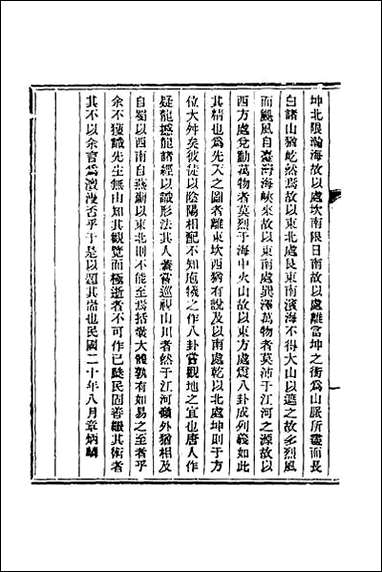 坤北限瀚海故以處坎南限日南故以處離當坤之衝爲山脈所盡而長
白諸山猶屹然焉故以東北處艮東南濱海不得大山以遮之故多烈風
而颶風自臺灣海峽來故以東南處巽澤萬物者莫沛于江河之源故以
西方處兌動萬物者莫烈于海中火山故以東方處震八卦成列義如此
其精也爲先天之圖者離東坎西猶有說及以南處乾以北處坤則于方
位大舛矣彼徒以陰陽相配不知庖犧之作八卦嘗觀地之宜也唐人作
疑龍撼龍諸經以識形法其人蓋嘗巡視山川者然于江河嶺外猶相及
自蜀以西南自燕薊以東北則不能至焉括囊大體孰有如易之至者乎
余不獲識先生無由知其觀覽而極逝者不可作已懿民固卷綴其術者
其不以余言爲漶漫否乎于是以題其耑也民國二十年八月章炳麟